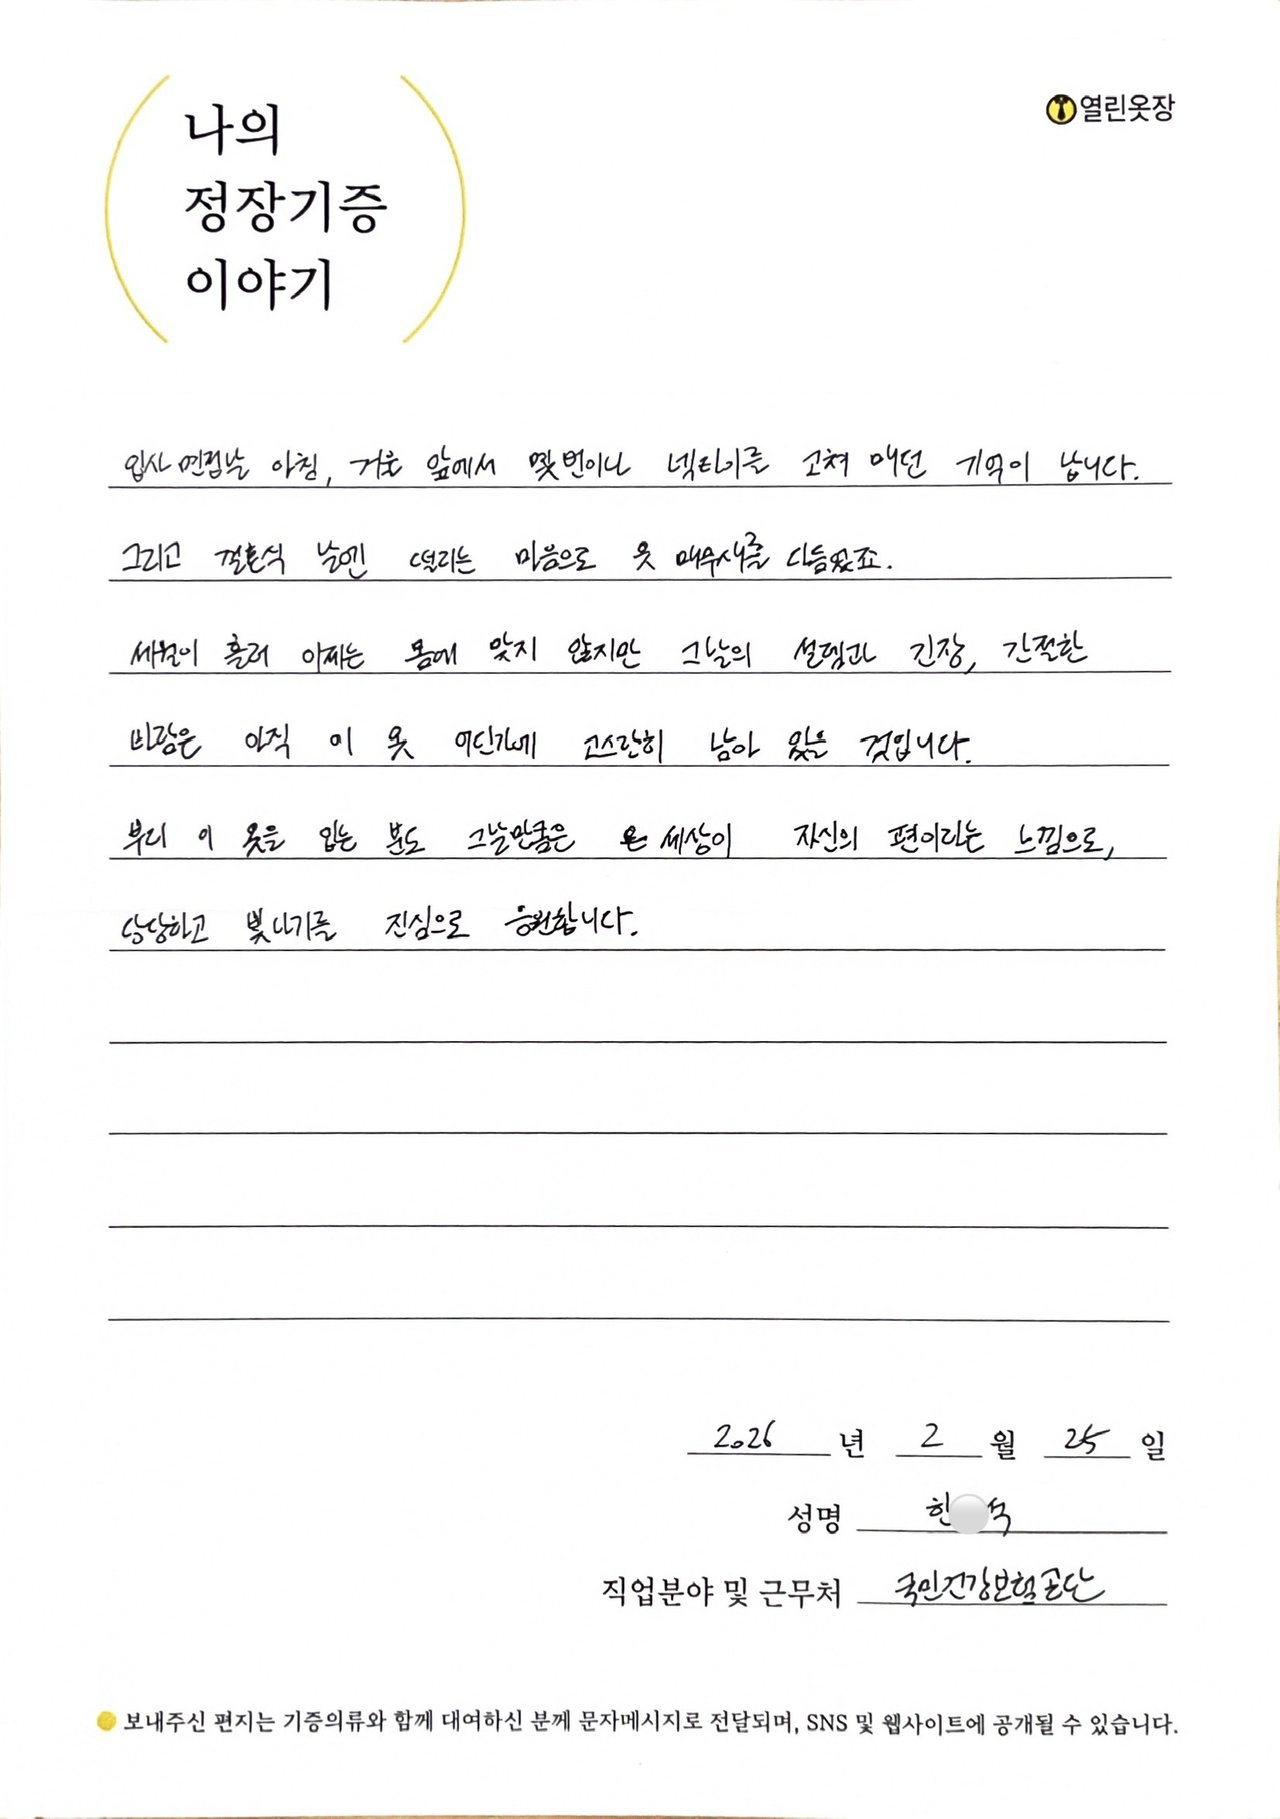 나의
정장기증
이야기
열린옷장
입사 면접날 아침, 거울 앞에서 몇 번이나 넥타이를 고쳐 매던 기억이 납니다.
그리고 결혼식 날엔 떨리는 마음으로 옷 매무새를 다듬었죠.
세월이 흘러 이제는 몸에 맞지 않지만 그날의 설렘과 긴장, 간절한
바람은 아직 이 옷 어딘가에 고스란히 남아 있을 것입니다.
부디 이 옷을 입는 분도 그날만큼은 온 세상이 자신의 편이라는 느낌으로,
당당하고 빛나기를 진심으로 응원합니다.
2026 년 2 월 25 일
성명 한 석
직업분야 및 근무처 국민건강보험공단
보내주신 편지는 기증의류와 함께 대여하신 분께 문자메시지로 전달되며, SNS 및 웹사이트에 공개될 수 있습니다.